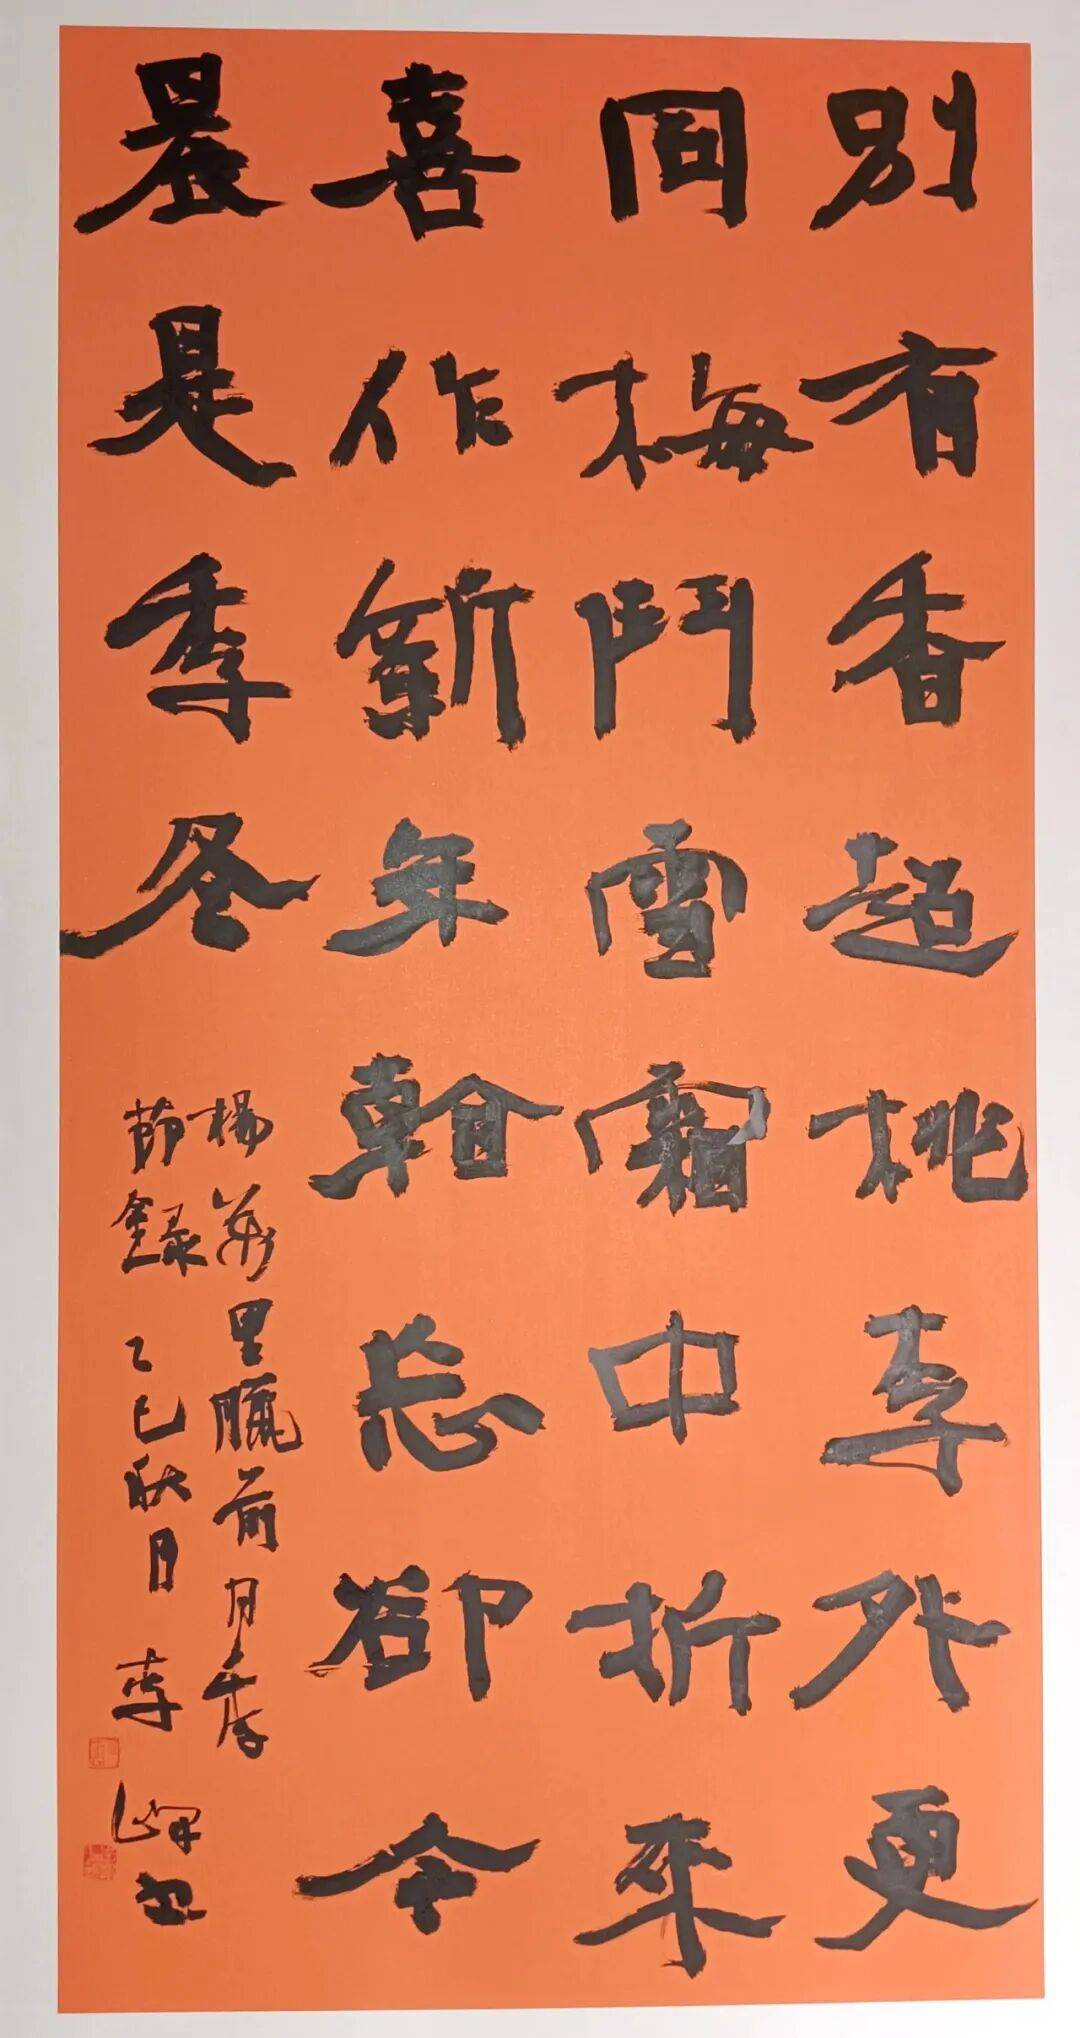 別有香超桃李外更
同梅鬥雪霜中折來
喜作新年看忘卻今
晨是季冬
楊萬里臘前月季
節錄 乙巳秋月 李